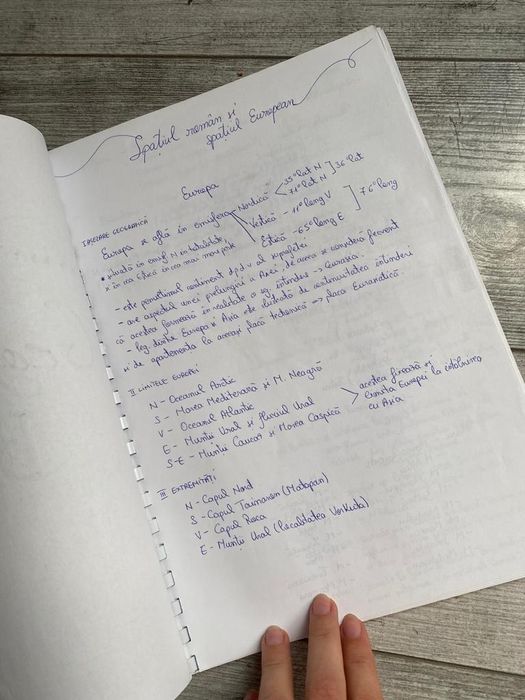 Spațiul român și
spațiul European
Europa
I AȘEZARE GEOGRAFICĂ
Europa se află în emisfera Nordică 35° lat N ] 36° lat
71° lat N
Vestică - 11° long V ] 76° long
Estică - 65° long E
* situată în emisf N în totalitate
* în cea Estică în cea mai mare parte
- este penultimul continent d.p.d.v al suprafeței
- are aspectul unei prelungiri a Asiei, de aceea se consideră frecvent
că acestea formează în realitate o sg. întindere → Eurasia.
- leg. dintre Europa și Asia este de continuitatea întinderii
și de apartenența la aceeași placă tectonică → placa Euroasiatică.
II LIMITELE EUROPEI
N - Oceanul Arctic
S - Marea Mediterană și M. Neagră
V - Oceanul Atlantic
E - Munții Ural și fluviul Ural
S-E - Munții Caucaz și Marea Caspică
acestea fixează și
limita Europei la întâlnirea
cu Asia
III EXTREMITĂȚI
N - Capul Nord
S - Capul Tainaron (Matapan)
V - Capul Roca
E - Munții Ural (localitatea Vorkuta)